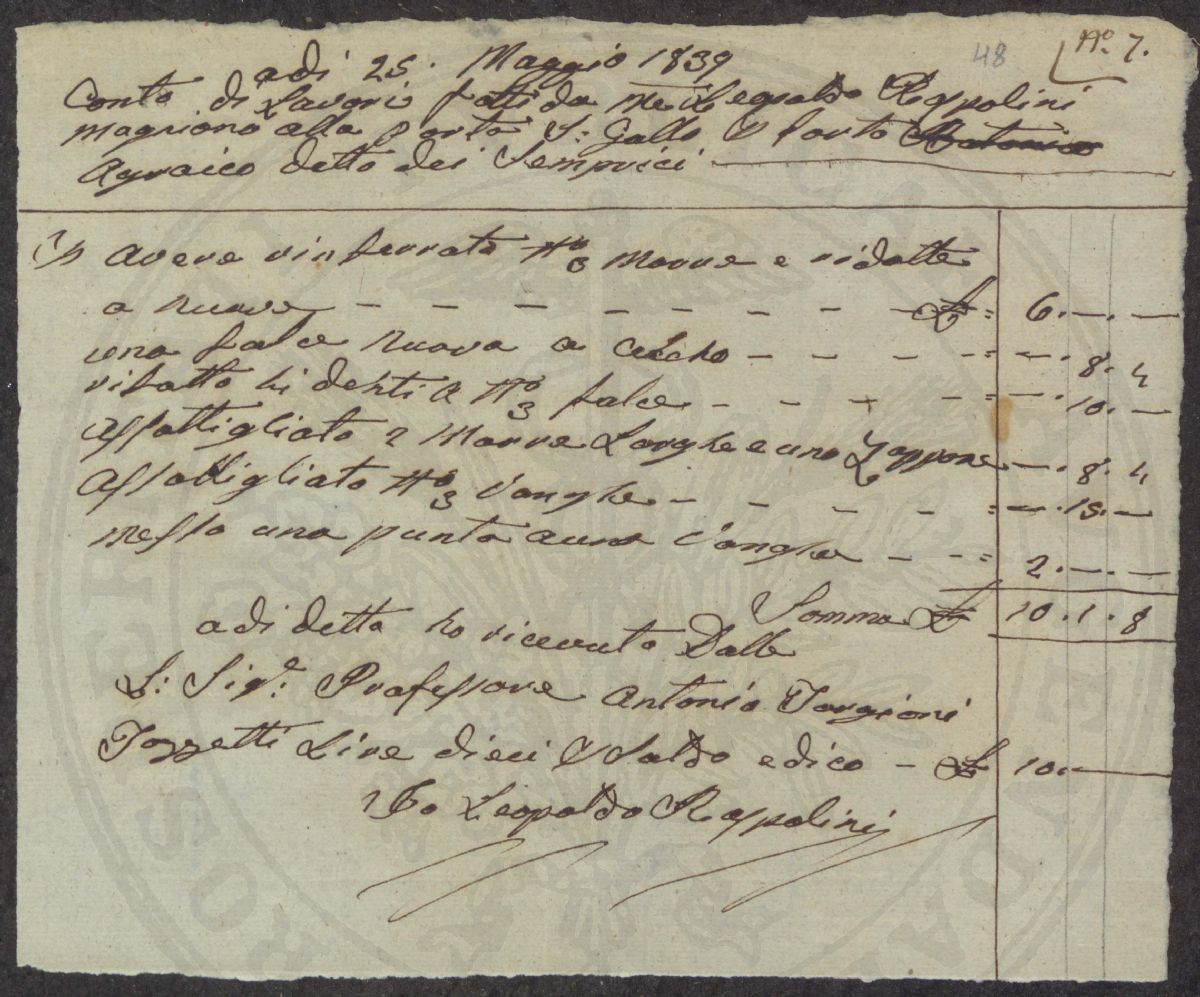 48
No. 7.
adi 25. Maggio 1839
Conto di Lavori fatti da me Leopoldo Rospolini
magniono alla porta S: Gallo P l'orto Antonio
Agraico detto dei Semprici
P avere rinferrato No 3 Marre e ridotte
a nuove - - - - - - - - £ = 6. — . —
una falce nuova a cecho - - - - - = — . 8. 4
rifatto li denti a No 3 falce - - - - = — . 10. —
assottigliato 2 Marre Larghe e uno Zappone — . 8. 4
assottigliato No 3 Vanghe - - - - - = — . 15. —
messo una punta a una Vangha - - - = 2. — . —
Somma £ 10. 1. 8
adi detto ho ricevuto Dalle
L: Sigr: Professore Antonio Targioni
Tozzetti Lire dieci P Saldo e dico - £ 10. —
Io Leopoldo Rospolini